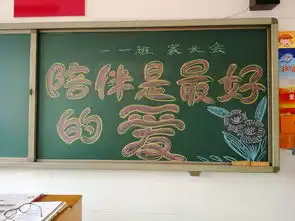 一一班 家长会
陪伴是最好
的爱